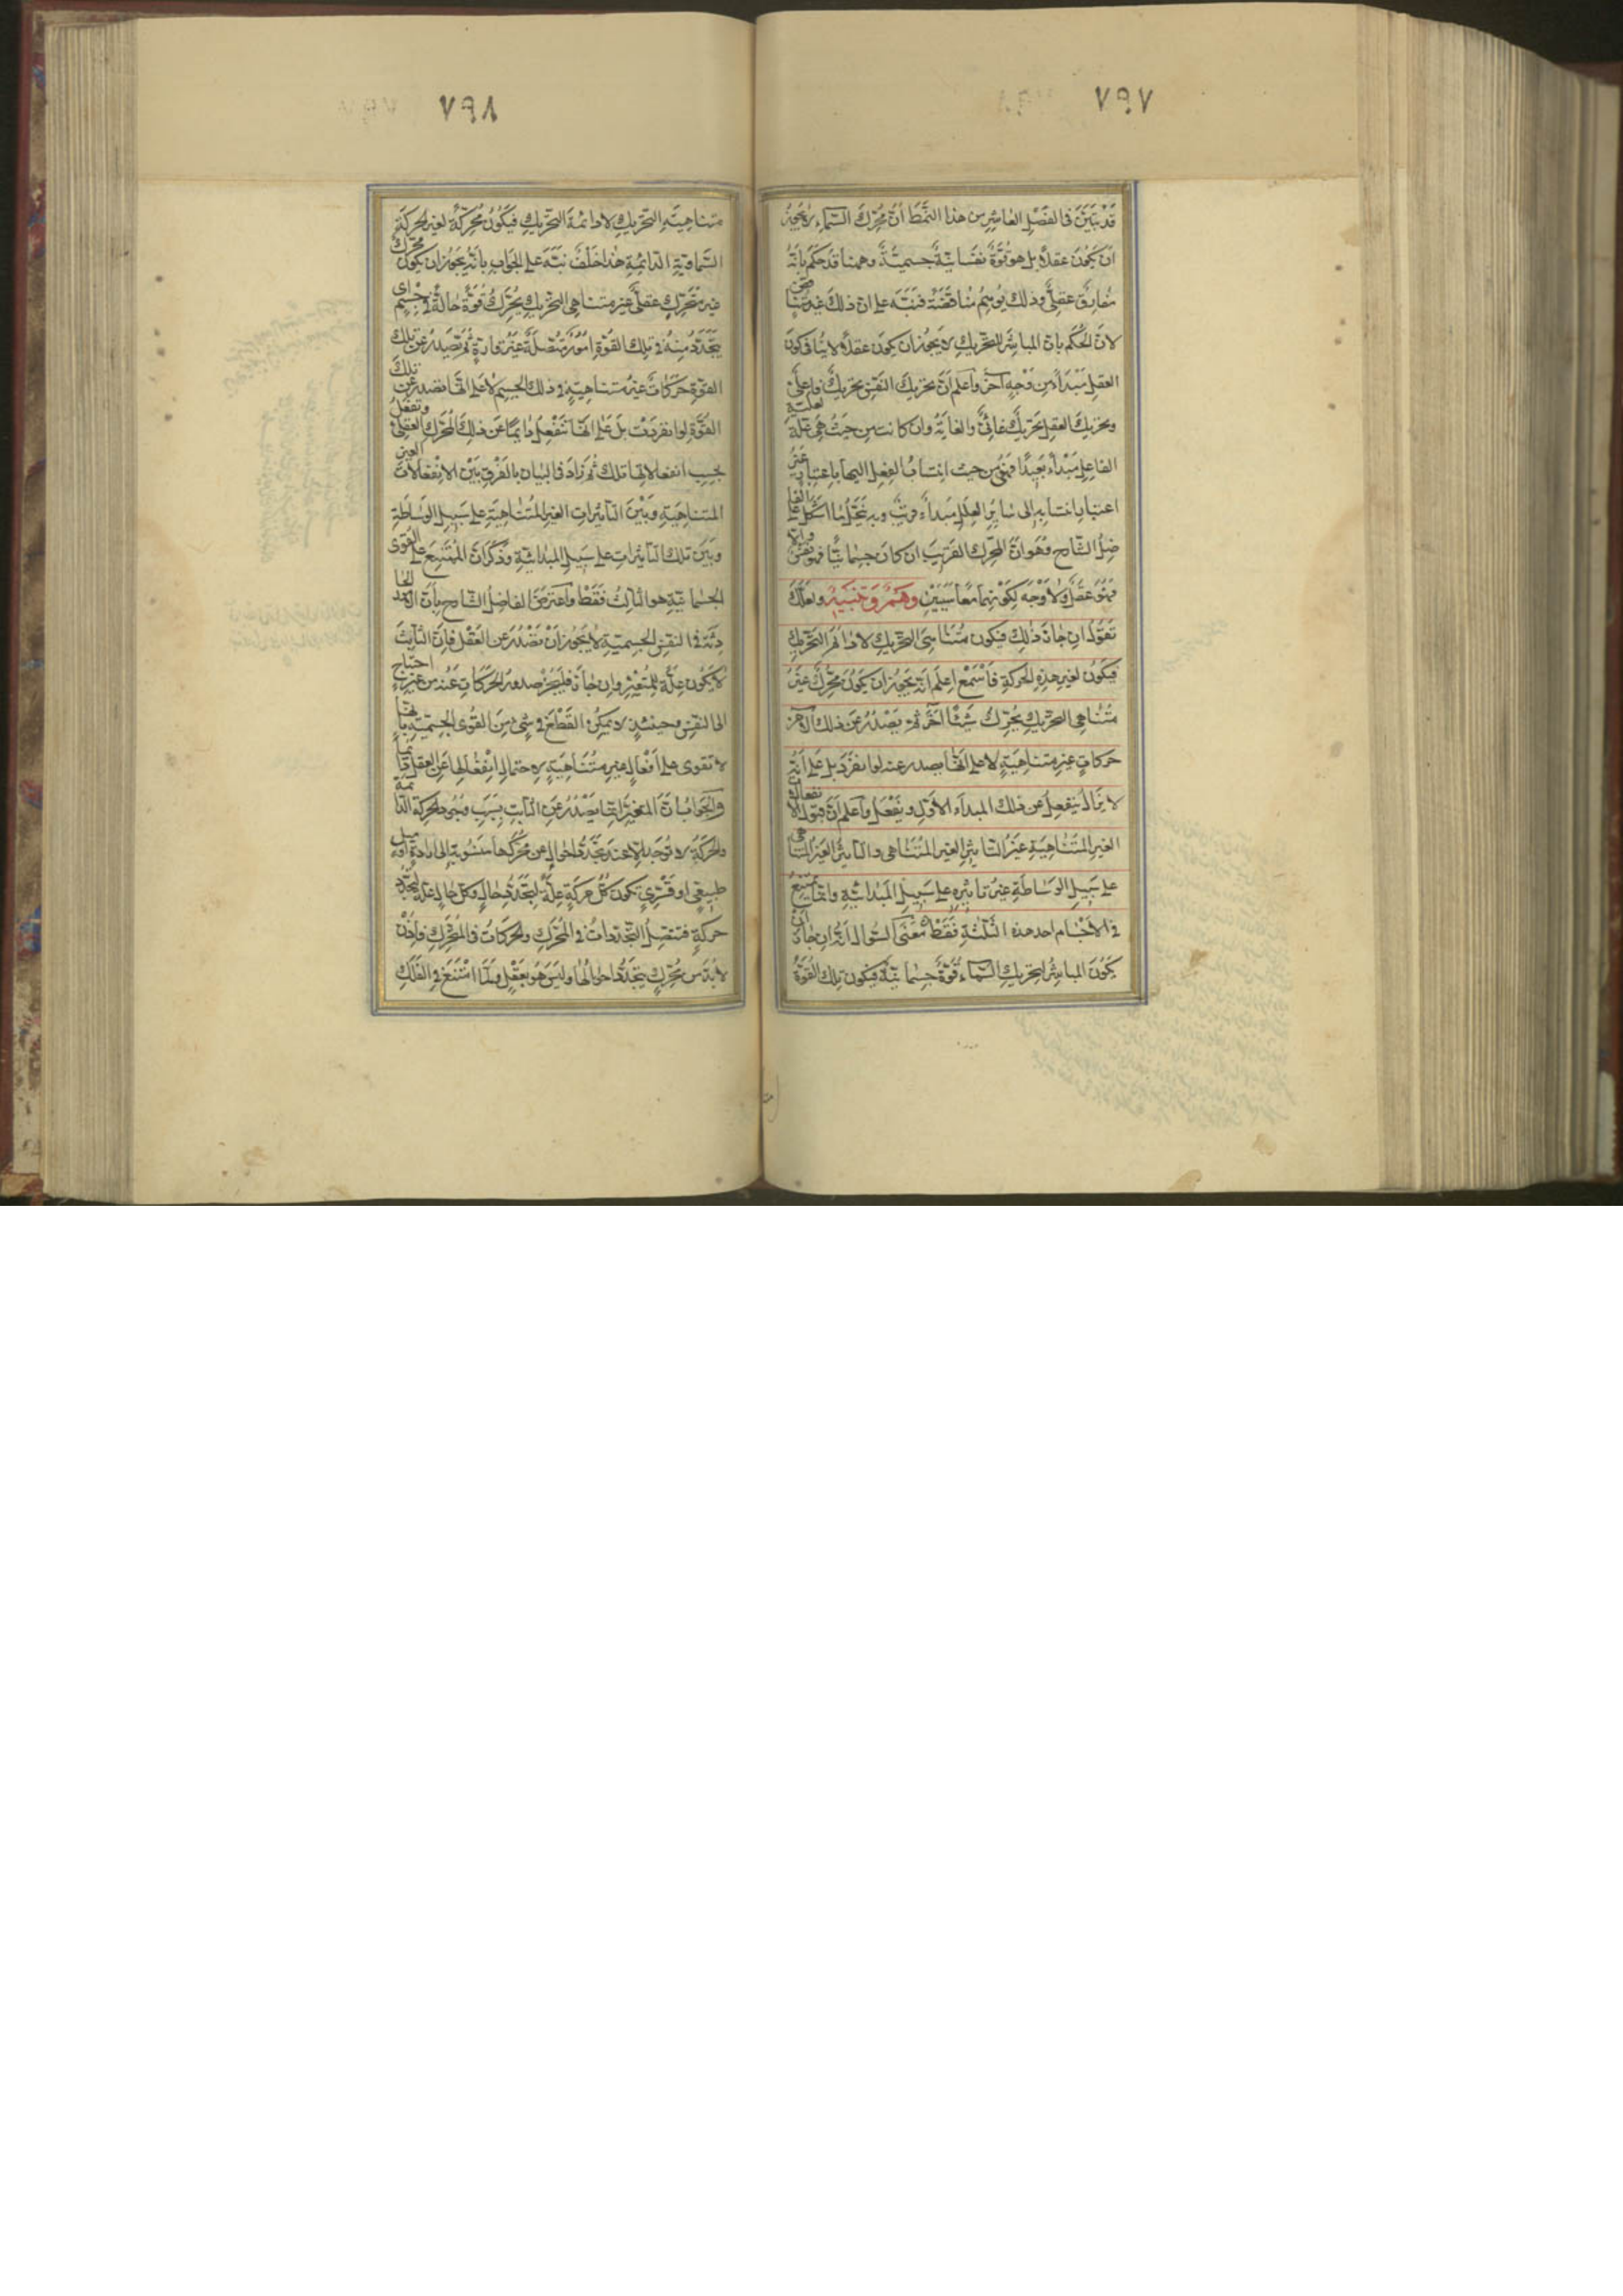 ٧٩٧
قد تبيّن فى الفصل العاشر من هذا النمط ان محرك السماء لا يجوز
ان يكون عقلا بل هو قوة نفسانية جسمية وههنا قد حكم بانه
مفارق عقلى وذلك يوهم مناقضة فنبه على ان ذلك غير متناقض
لان الحكم بان المباشر للتحريك لا يجوز ان يكون عقلا لا ينافى كون
العقل مبدأ من وجه آخر واعلم ان تحريك النفس تحريك فاعلى
وتحريك العقل تحريك غائى والغاية وان كانت من حيث هى علة لعلية
الفاعل مبدأ بعيدا فهى من حيث انتساب الفعل اليها باعتبار غير
اعتبار انتسابه الى سائر العلل مبدأ قريب وبه ينحل ما اشكل على الفا
ضل الشارح وهو ان المحرك القريب ان كان جسمانيا فهو نفس والا
فهو عقل ولا وجه لكونهما معا سببين وهم وتنبيه ولعلك
تقول ان جاز ذلك فيكون متناهى التحريك لا دائم التحريك
فيكون لغير هذه الحركة فاسمع اعلم انه يجوز ان يكون محرك غير
متناهى التحريك يحرك شيئا آخر ثم يصدر عن ذلك الآخر
حركات غير متناهية لا على انها يصدر عنه لو انفرد بل على انه
لا يزال ينفعل عن ذلك المبدأ الاول ويفعل واعلم ان قبول الانفعالات
الغير المتناهية غير التاثير الغير المتناهى والتاثير الغير المتناهى
على سبيل الوساطة غير تاثيره على سبيل المبدائية وانما يمتنع
فى الاجسام احد هذه الثلثة فقط معنى السؤال انه ان جاز ان
يكون المباشر لتحريك السماء قوة جسمانية فيكون تلك القوة
٧٩٨
متناهية التحريك لا دائمة التحريك فيكون محركة لغير الحركة
السماوية الدائمة هذا خلف نبه على الجواب بانه يجوز ان يكون محرك
غير متحرك عقلى غير متناهى التحريك يحرك قوة حالة فى جسم اى
يتجدد منه فى تلك القوة امور متصلة غير قارة ثم تصدر عن تلك
القوة حركات غير متناهية فى ذلك الجسم لا على انها تصدر عن تلك
القوة لو انفردت بل على انها تنفعل دايما عن ذلك المحرك العقلى وتفعل
بحسب انفعالاتها تلك ثم زاد فى البيان بالفرق بين الانفعالات الغير
المتناهية وبين التاثيرات الغير المتناهية على سبيل الوساطة
وبين تلك التاثيرات على سبيل المبدائية وذكر ان الممتنع على القوى
الجسمانية هو الثالث فقط واعترض الفاضل الشارح بان الامور الحا
دثة فى النفس الجسمية لا يجوز ان تصدر عن العقل فان الثابت
لا يكون علة للمتغير وان جاز فليجز صدور الحركات عنه من غير احتياج
الى النفس وحينئذ لا يمكن القطع فى شئ من القوى الجسمية بانها
لا تقوى على افعال غير متناهية لاحتمال انفعالها عن العقل دائما
والجواب ان المتغير انما يصدر عن الثابت بسبب وسبى الحركة الدائمة
والحركة لا توجد الا عند تجدد احوال عن محركها منسوبة الى ارادة او ميل
طبيعى او قسرى تكون كل حركة علة لتجدد حال وكل حال علة لتجدد
حركة فتتصل التجددات فى المحرك والحركات فى المتحرك فاذن
لا بد من محرك يتجدد احوالها وليس هو بعقل ولما امتنع فى الفلك